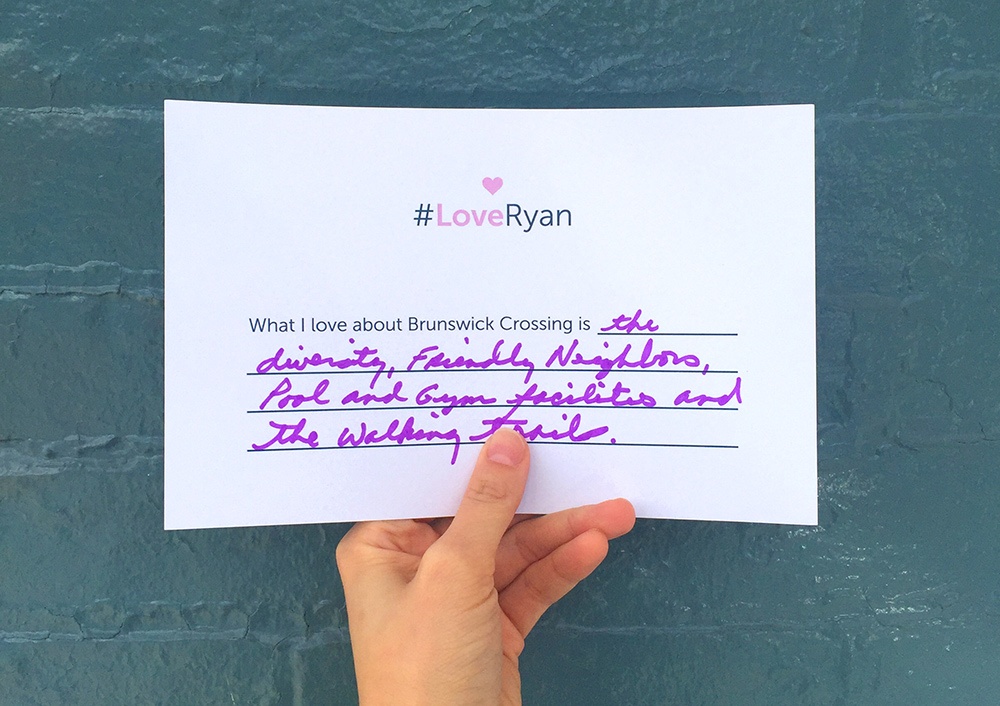 #LoveRyan
What I love about Brunswick Crossing is the
diversity, Friendly Neighbors,
Pool and Gym facilities and
The Walking trails.